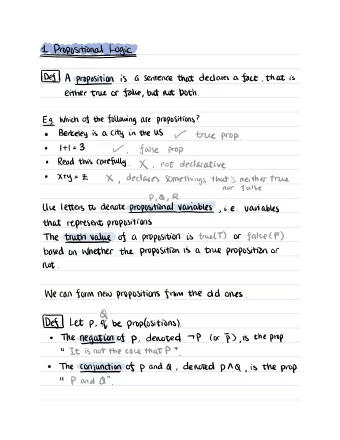 1. Propositional Logic
Def A proposition is a sentence that declares a fact, that is
either true or false, but not both.
Eg. Which of the following are propositions?
• Berkeley is a city in the US ✓ true prop
• 1+1=3 ✓, false prop
• Read this carefully. X, not declarative
• x+y=z X, declares something that's neither true
nor false
P, Q, R
Use letters to denote propositional variables, i.e. variables
that represent propositions
The truth value of a proposition is true(T) or false(F)
based on whether the proposition is a true proposition or
not.
We can form new propositions from the old ones.
Q
Def Let p, q be prop(ositions).
• The negation of p, denoted ¬P (or p̄), is the prop
" It is not the case that P ".
• The conjunction of p and Q, denoted p∧Q, is the prop
" P and Q".